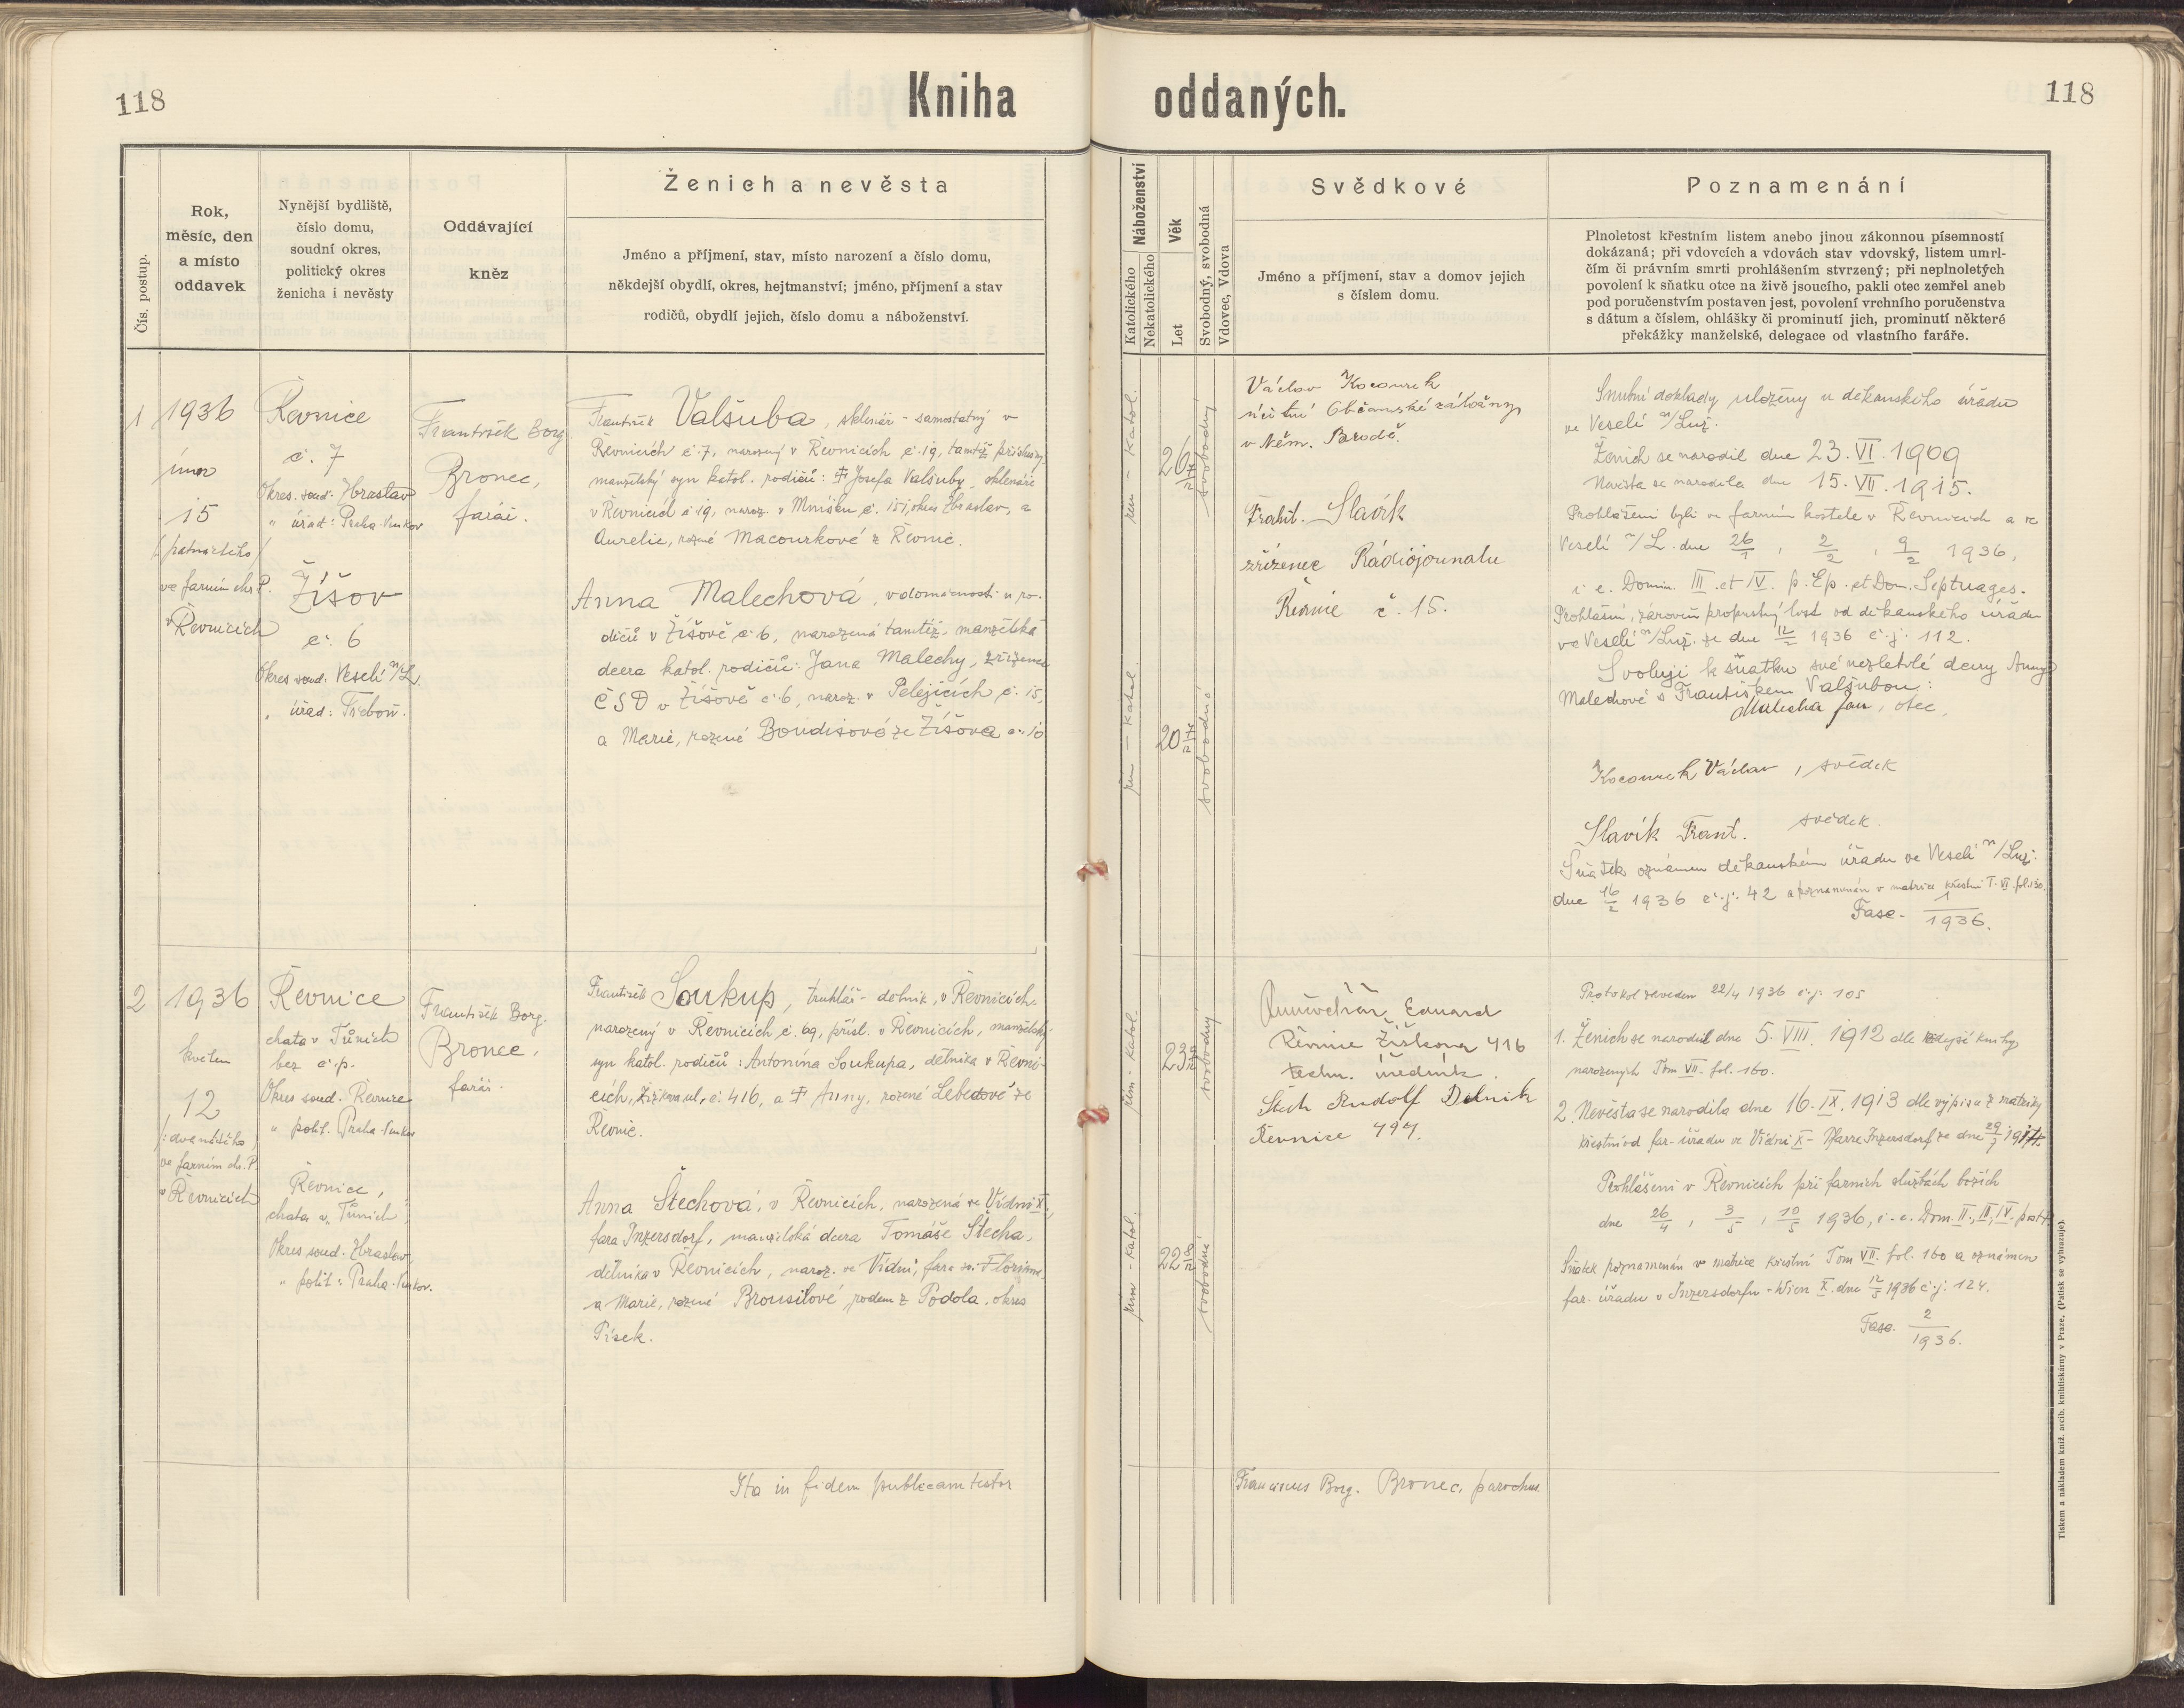 118
Kniha
oddaných.
118
Čís. postup.
Rok,
měsíc, den
a místo
oddavek
Nynější bydliště,
číslo domu,
soudní okres,
politický okres
ženicha i nevěsty
Oddávající
kněz
Ženich a nevěsta
Jméno a příjmení, stav, místo narození a číslo domu,
někdejší obydlí, okres, hejtmanství; jméno, příjmení a stav
rodičů, obydlí jejich, číslo domu a náboženství.
Náboženství
Katolického
Nekatolického
Věk
Let
Svobodný, svobodná
Vdovec, Vdova
Svědkové
Jméno a příjmení, stav a domov jejich
s číslem domu.
Poznamenání
Plnoletost křestním listem anebo jinou zákonnou písemností
dokázaná; při vdovcích a vdovách stav vdovský, listem umrl-
čím či právním smrti prohlášením stvrzený; při neplnoletých
povolení k sňatku otce na živě jsoucího, pakli otec zemřel aneb
pod poručenstvím postaven jest, povolení vrchního poručenstva
s dátum a číslem, ohlášky či prominutí jich, prominutí některé
překážky manželské, delegace od vlastního faráře.
1
1936
února
15
/patnáctého/
ve farním chr. P.
v Řevnicích
Řevnice
č. 7
Okres. soud. Zbraslav
" úřad: Praha-Venkov
Žíšov
č. 6
Okres soud. Veselí n/L.
" úřad: Třeboň.
František Borg.
Bronec,
farář.
František Valšuba, sklenář - samostatný v
Řevnicích č. 7, narozený v Řevnicích č. 19, tamtéž příslušný,
manželský syn katol. rodičů: † Josefa Valšuby, sklenáře
v Řevnicích č. 19, naroz. v Mníšku č. 151, okres Zbraslav, a
Aurelie, rozené Macourkové z Řevnic.
Anna Malechová, v domácnosti u ro-
dičů v Žíšově č. 6, narozená tamtéž, manželská
dcera katol. rodičů: Jana Malechy, zřízence
ČSD v Žíšově č. 6, naroz. v Pelejicích č. 15,
a Marie, rozené Boudisové ze Žíšova č. 10
řím - katol.
26 7/12
svobodný
řím - katol.
20 7/12
svobodná
Václav Kocourek
účetní Občanské záložny
v Něm. Brodě.
Frant. Slavík
zřízenec Rádiojournalu
Řevnice č. 15.
Snubní doklady uloženy u děkanského úřadu
ve Veselí n/Luž.
Ženich se narodil dne 23. VI. 1909
Nevěsta se narodila dne 15. VII. 1915.
Prohlášeni byli ve farním kostele v Řevnicích a ve
Veselí n/L. dne 26/1, 2/2, 9/2 1936,
i. e. Domin. III. et IV. p. Ep. et Dom. Septuages.
Prohlášní, zároveň propustný list od děkanského úřadu
ve Veselí n/Luž. ze dne 12/2 1936 č. j. 112.
Svoluji k sňatku své nezletilé dcery Anny
Malechové s Františkem Valšubou:
Malecha Jan, otec,
Kocourek Václav, svědek
Slavík Frant. svědek.
Sňatek oznámen děkanském úřadu ve Veselí n/Luž.
dne 16/2 1936 č. j. 42 a poznamenán v matrice křestní T. VI. fol. 130.
Fasc. 1/1936.
2
1936
květen
12
/: dvanáctého
ve farním ch. P.
v Řevnicích
Řevnice
chata v Tůních
bez č. p.
Okres soud. Řevnice
" polit. Praha-Venkov
Řevnice,
chata v „Tůních"
Okres soud. Zbraslav
" polit: Praha-Venkov.
František Borg.
Bronec,
farář.
František Soukup, truhlář - dělník, v Řevnicích
narozený v Řevnicích č. 69, přísl. v Řevnicích, manželský
syn katol. rodičů: Antonína Soukupa, dělníka v Řevni-
cích, Žižkova ul. č. 416, a † Anny, rozené Lebedové ze
Řevnic.
Anna Štechová, v Řevnicích, narozená ve Vídni X.,
fara Inzersdorf, manželská dcera Tomáše Štecha,
dělníka v Řevnicích, naroz. ve Vídni, fara sv. Floriana,
a Marie, rozené Brousilové rodem z Podola, okres
Písek.
řím - katol.
23
svobodný
řím - katol.
22
svobodná
Eduard
Řevnice Žižkova 416
techn. úředník.
Štech Rudolf Dělník
Řevnice 494.
Protokol zaveden 22/4 1936 č. j. 105
1. Ženich se narodil dne 5. VIII. 1912 dle zdejší knihy
narozených Tom VII. fol. 160.
2. Nevěsta se narodila dne 16. IX. 1913 dle výpisu z matriky
křestní od far. úřadu ve Vídni X - Pfarre Inzersdorf ze dne 29/7 1914.
Prohlášeni v Řevnicích při farních službách božích
dne 26/4, 3/5, 10/5 1936, i. e. Dom. II., III., IV. post
Sňatek poznamenán v matrice křestní Tom VII. fol. 160 a oznámen
far. úřadu v Inzersdorfu - Wien X. dne 12/5 1936 č. j. 124.
Fasc. 2/1936.
Ita in fidem publicam testor
Franciscus Borg. Bronec, parochus
Tiskem a nákladem kníž. arcib. knihtiskárny v Praze. (Patisk se vyhrazuje).